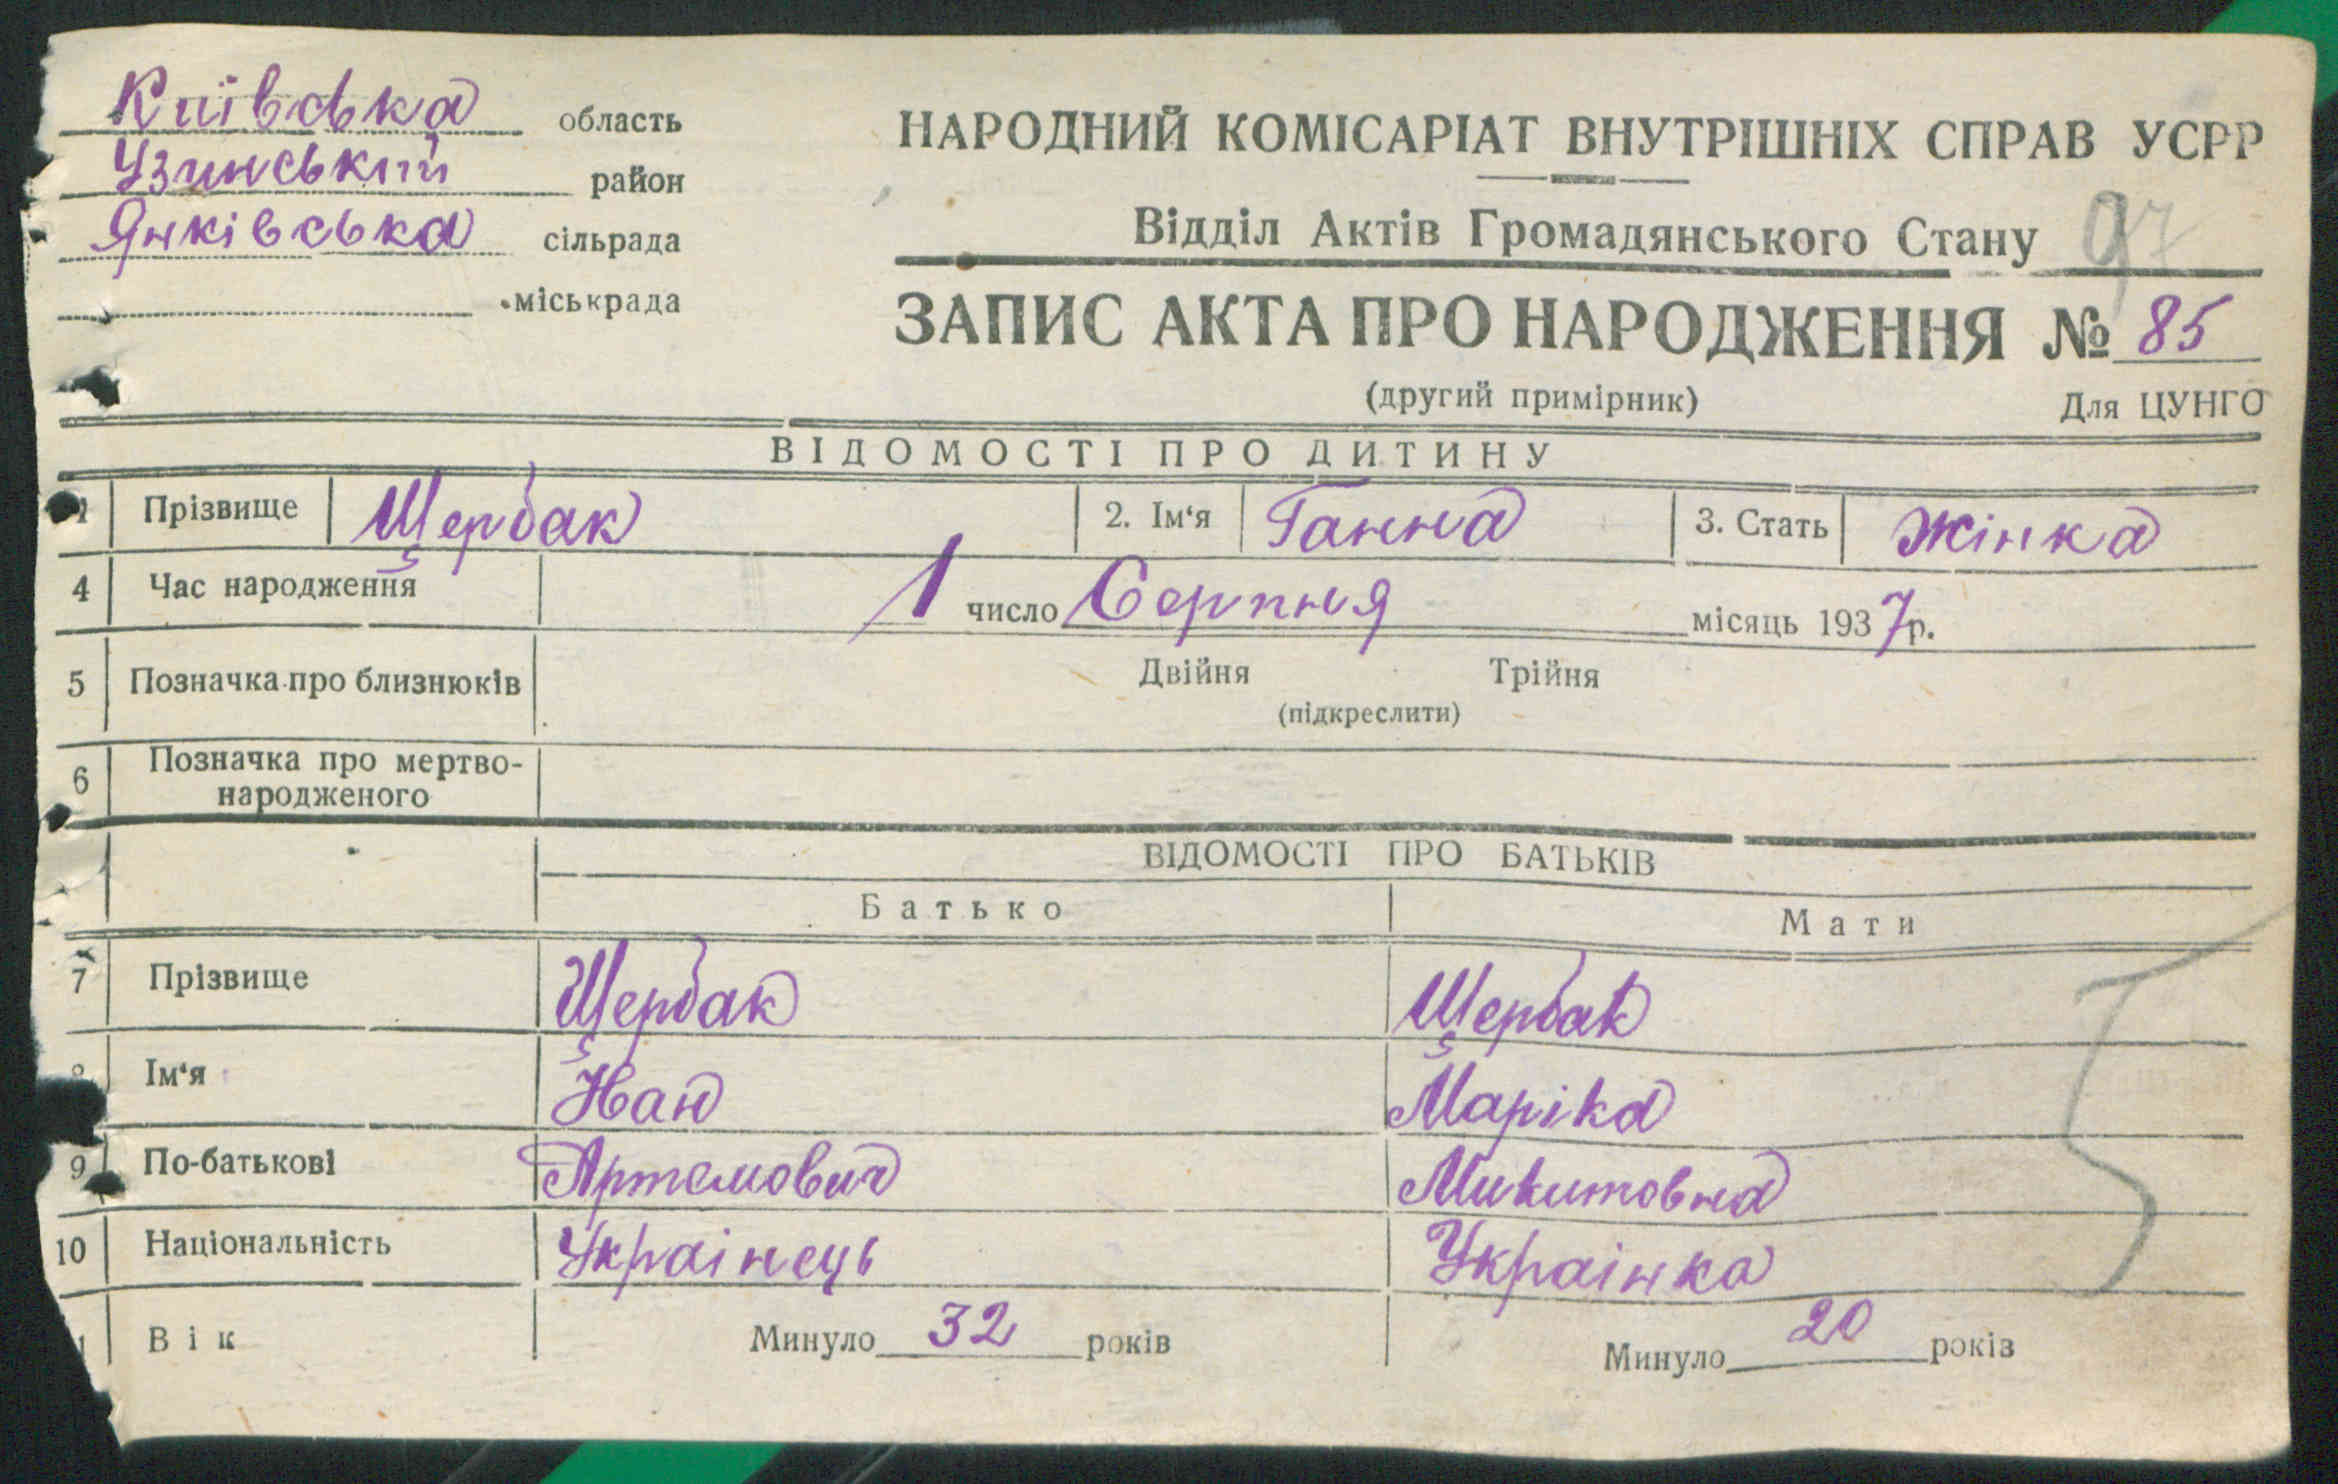 Київська область
Узинський район
Янківська сільрада
міськрада
НАРОДНИЙ КОМІСАРІАТ ВНУТРІШНІХ СПРАВ УСРР
Відділ Актів Громадянського Стану 97
ЗАПИС АКТА ПРО НАРОДЖЕННЯ № 85
(другий примірник) Для ЦУНГО
ВІДОМОСТІ ПРО ДИТИНУ
1 Прізвище Щербак 2. Ім‘я Ганна 3. Стать Жінка
4 Час народження 1 число Серпня місяць 1937р.
5 Позначка про близнюків Двійня Трійня
(підкреслити)
6 Позначка про мертво-
народженого
ВІДОМОСТІ ПРО БАТЬКІВ
Батько Мати
7 Прізвище Щербак Щербак
8 Ім‘я Іван Маріка
9 По-батькові Артемович Микитовна
10 Національність Украінець Украінка
Вік Минуло 32 років Минуло 20 років